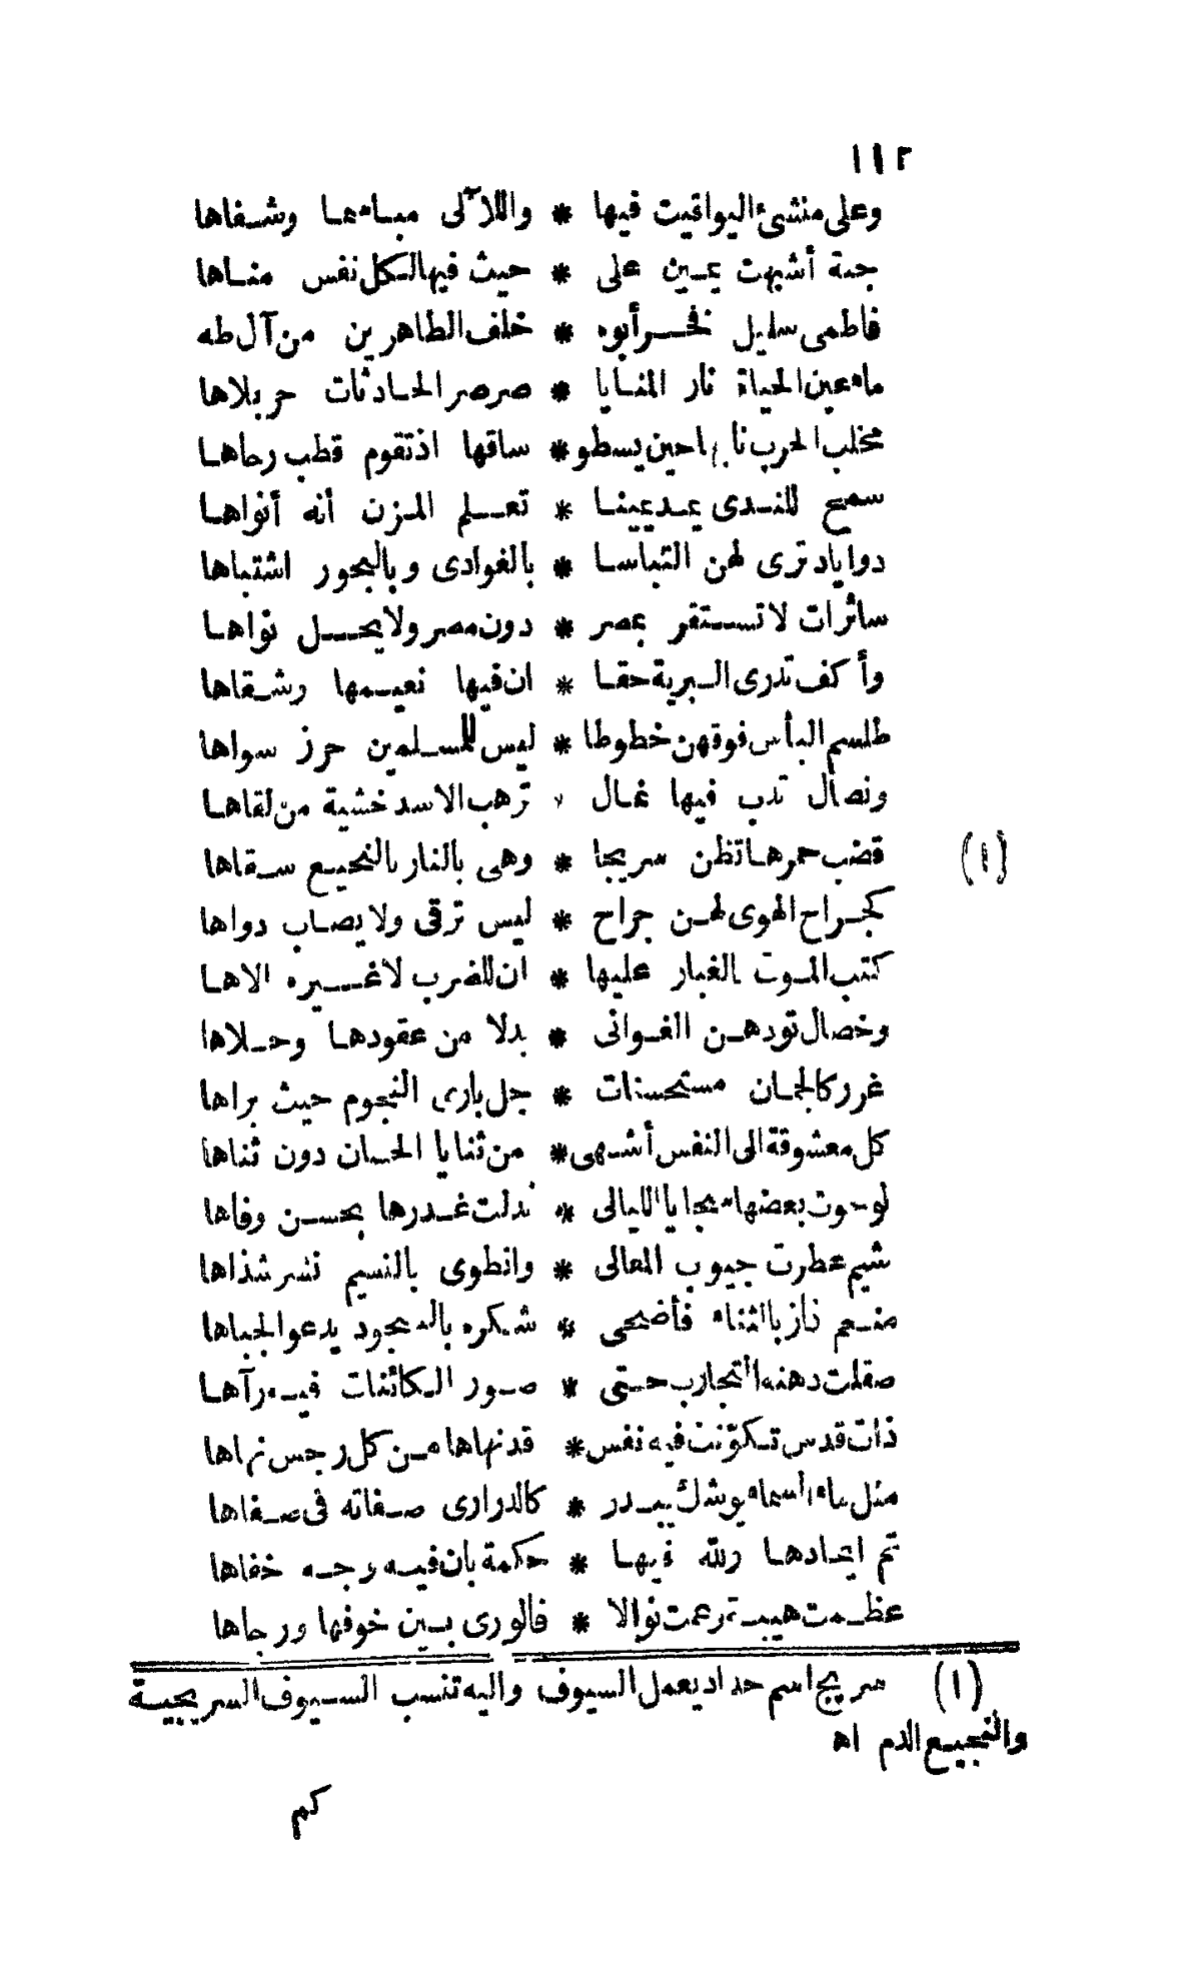 ١١٢
وعلى منشئ اليواقيت فيها * واللآلى مباسما وشفاها
جنة أشبهت يمين على * حيث فيها لكل نفس مناها
فاطمى سليل فخر أبوه * خلف الطاهرين من آل طه
ماء عين الحياة نار المنايا * صرصر الحادثات حر بلاها
مخلب الحرب نابها حين يسطو * ساقها اذ تقوم قطب رحاها
سمح للندى يمد يمينا * تعلم المزن أنه أنواها
ذوا ياد ترى لهن التباسا * بالغوادى وبالبحور اشتباها
سائرات لا تستقر بمصر * دون مصر ولا يحل نواها
وأكف تدرى البرية حقا * ان فيها نعيمها وشقاها
طلسم البأس فوقهن خطوطا * ليس للمسلمين حرز سواها
ونصال تدب فيها نمال * ترهب الاسد خشية من لقاها
(١) قضب حمرها تظن سريجا * وهى بالنار بالنجيع سقاها
كجراح الهوى لهن جراح * ليس ترقى ولا يصاب دواها
كتب الموت بالغبار عليها * ان للضرب لا غيره الاها
وخصال تودهن الغوانى * بدلا من عقودها وحلاها
غرر كالجمان مستحسنات * جل بارى النجوم حيث براها
كل معشوقة الى النفس أشهى * من ثنايا الحسان دون ثناها
لو حوت بعضها سجايا الليالى * بدلت غدرها بحسن وفاها
شيم عطرت جيوب المعالى * وانطوى بالنسيم نشر شذاها
منعم فاز بالثناء فأضحى * شكره بالسجود يدعو الجباها
صقلت ذهنه التجارب حتى * صور الكائنات فيه رآها
ذات قدس تكوّنت فيه نفس * قد نهاها من كل رجس نهاها
مثل ماء السماء يوشك يبدر * كالدرارى صفاته فى صفاها
تم ايجادها ولله فيها * حكمة بان فيه وجه خفاها
عظمت هيبة وعمت نوالا * فالورى بين خوفها ورجاها
(١) سريج اسم حداد يعمل السيوف واليه تنسب السيوف السريجية
والنجيع الدم اه
كم